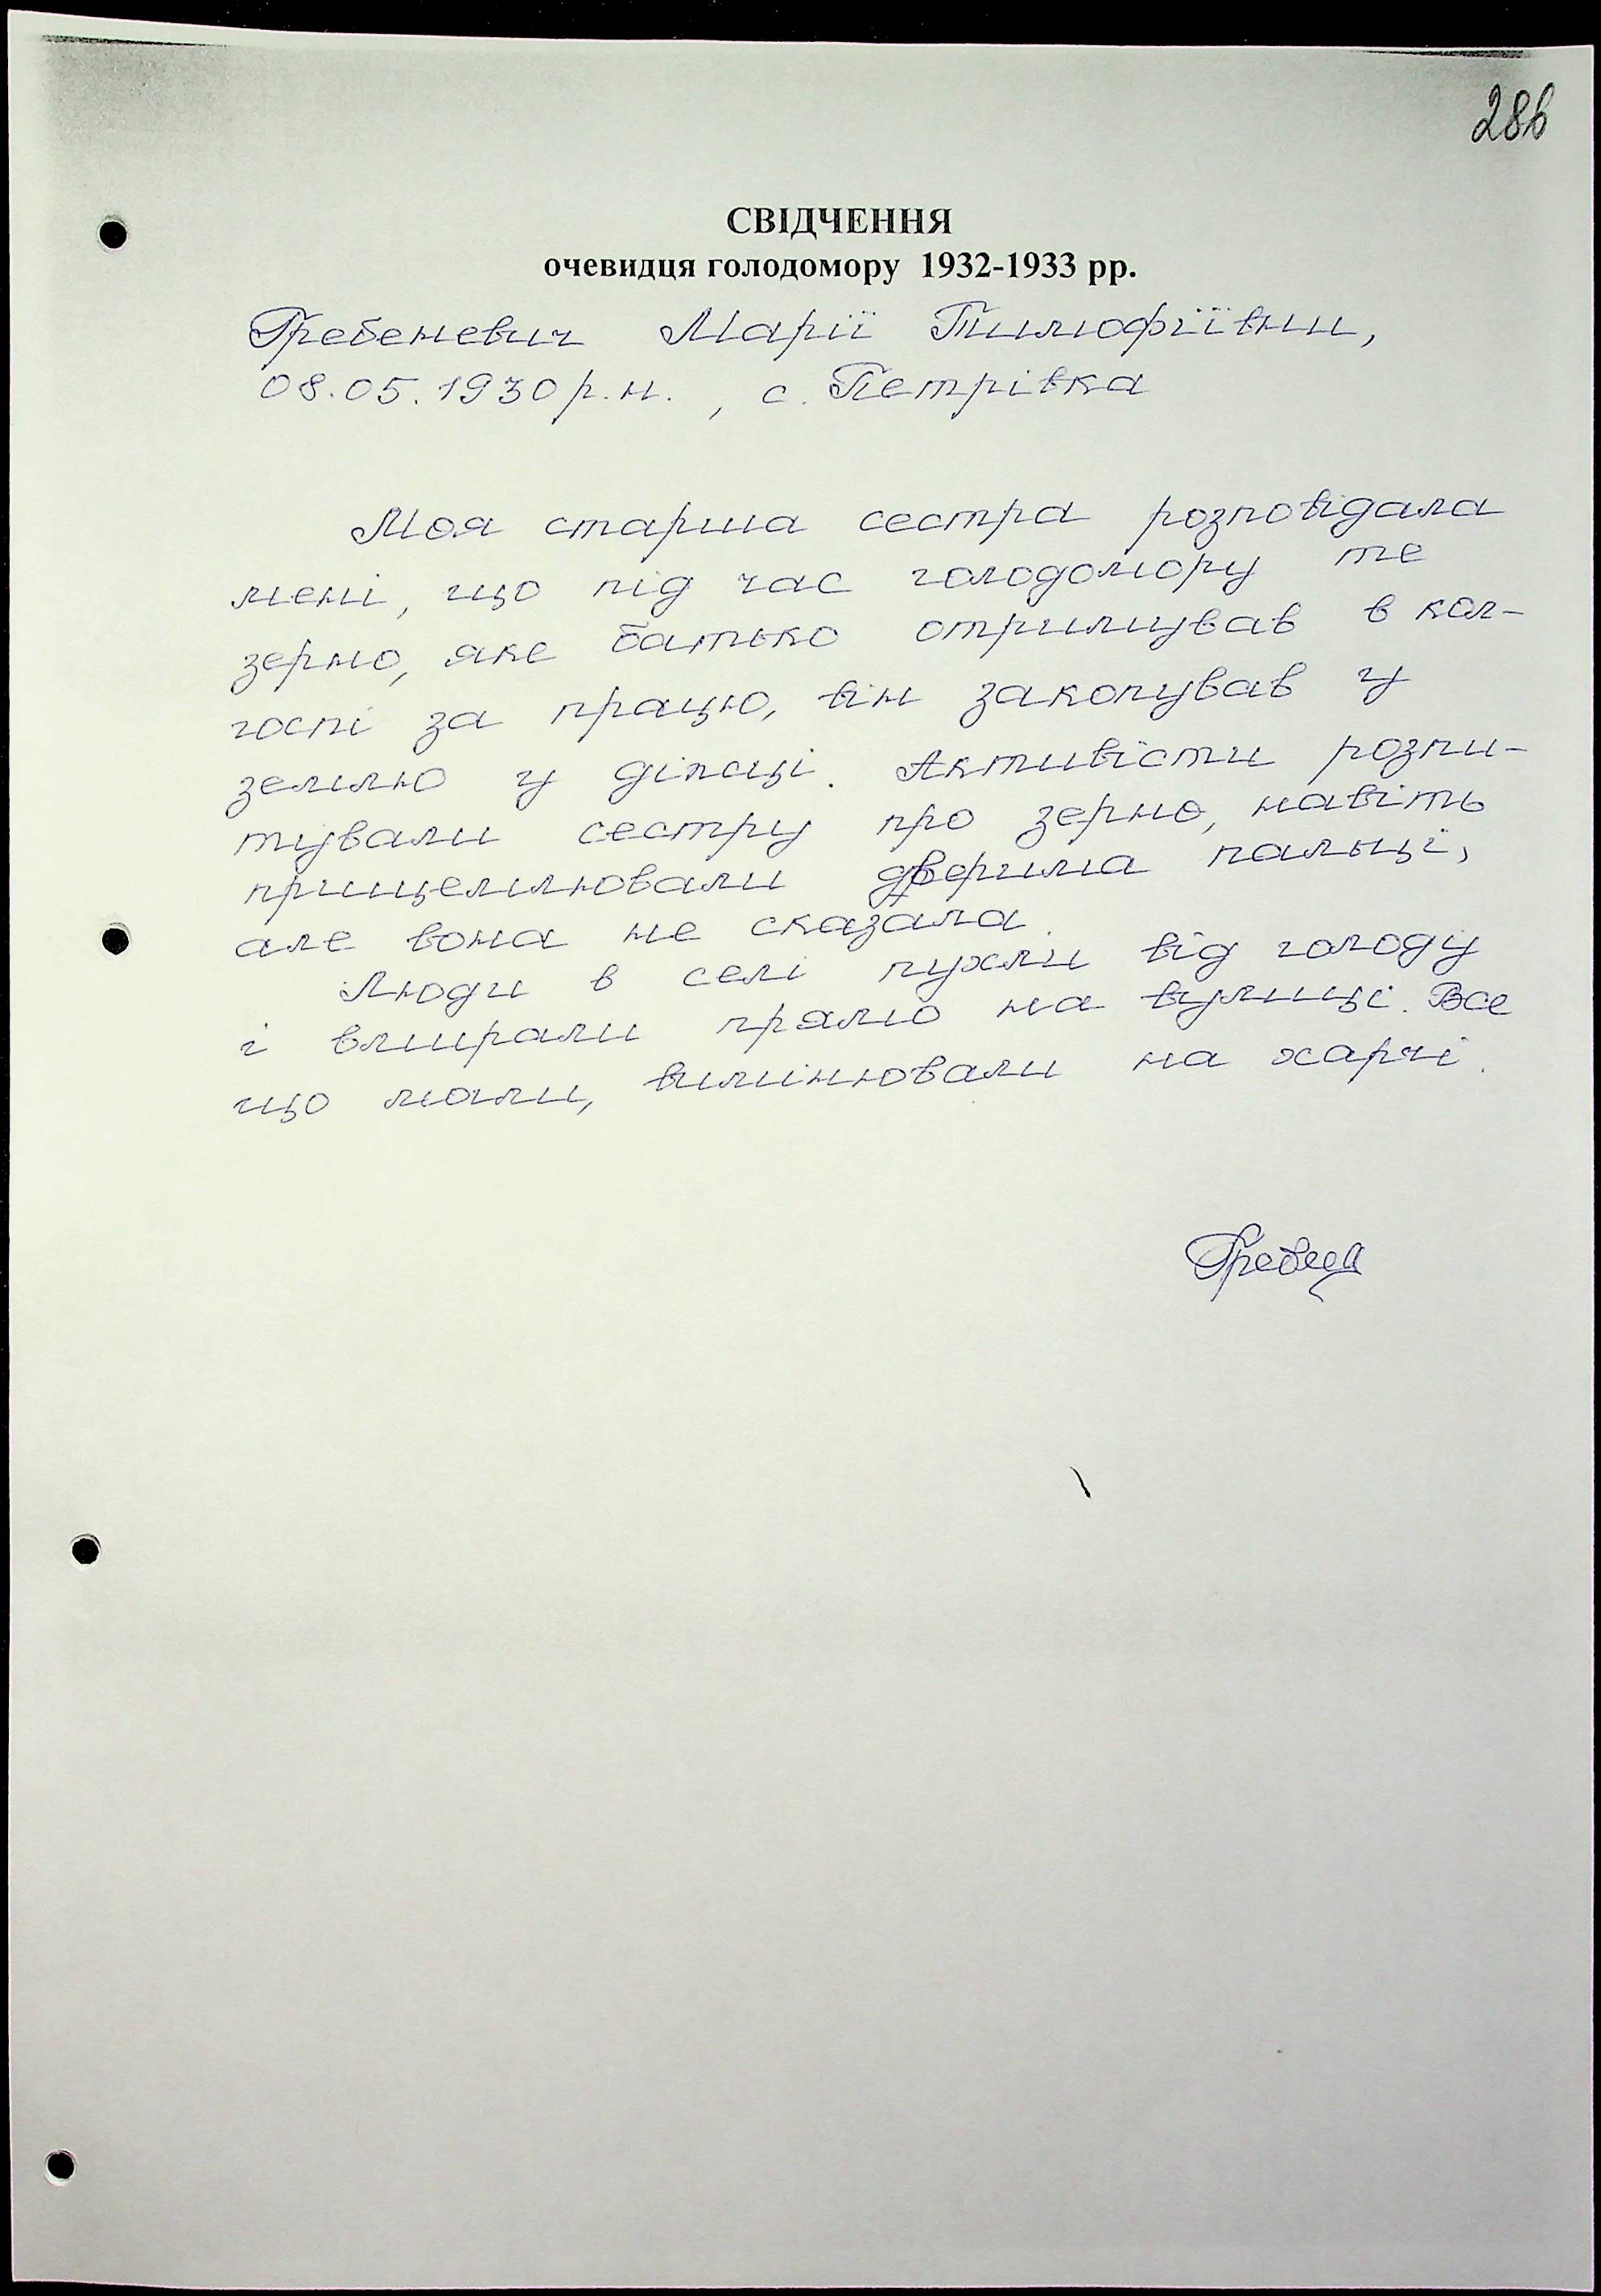 286
СВІДЧЕННЯ
очевидця голодомору 1932-1933 рр.
Гребеневич Марії Тимофіївни,
08.05.1930 р.н., с. Петрівка
Моя старша сестра розповідала
мені, що під час голодомору те
зерно, яке батько отримував в кол-
госпі за працю, він закопував у
землю у діжці. Активісти розпи-
тували сестру про зерно, навіть
прищемлювали дверима пальці,
але вона не сказала.
Люди в селі пухли від голоду
і вмирали прямо на вулиці. Все
що мали, вимінювали на харчі.